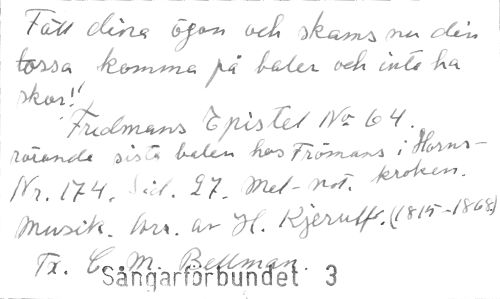 Fäll dina ögon och skams nu din
tossa komma på baler och inte ha
skor!"
Fredmans Epistel No 64.
rörande sista balen hos Frömans i Horns-
kroken.
Nr. 174. Sid. 27. Mel- not.
Musik. arr. av H. Kjerulf. (1815-1868)
Tx. C. M. Bellman.
Sångarförbundet 3